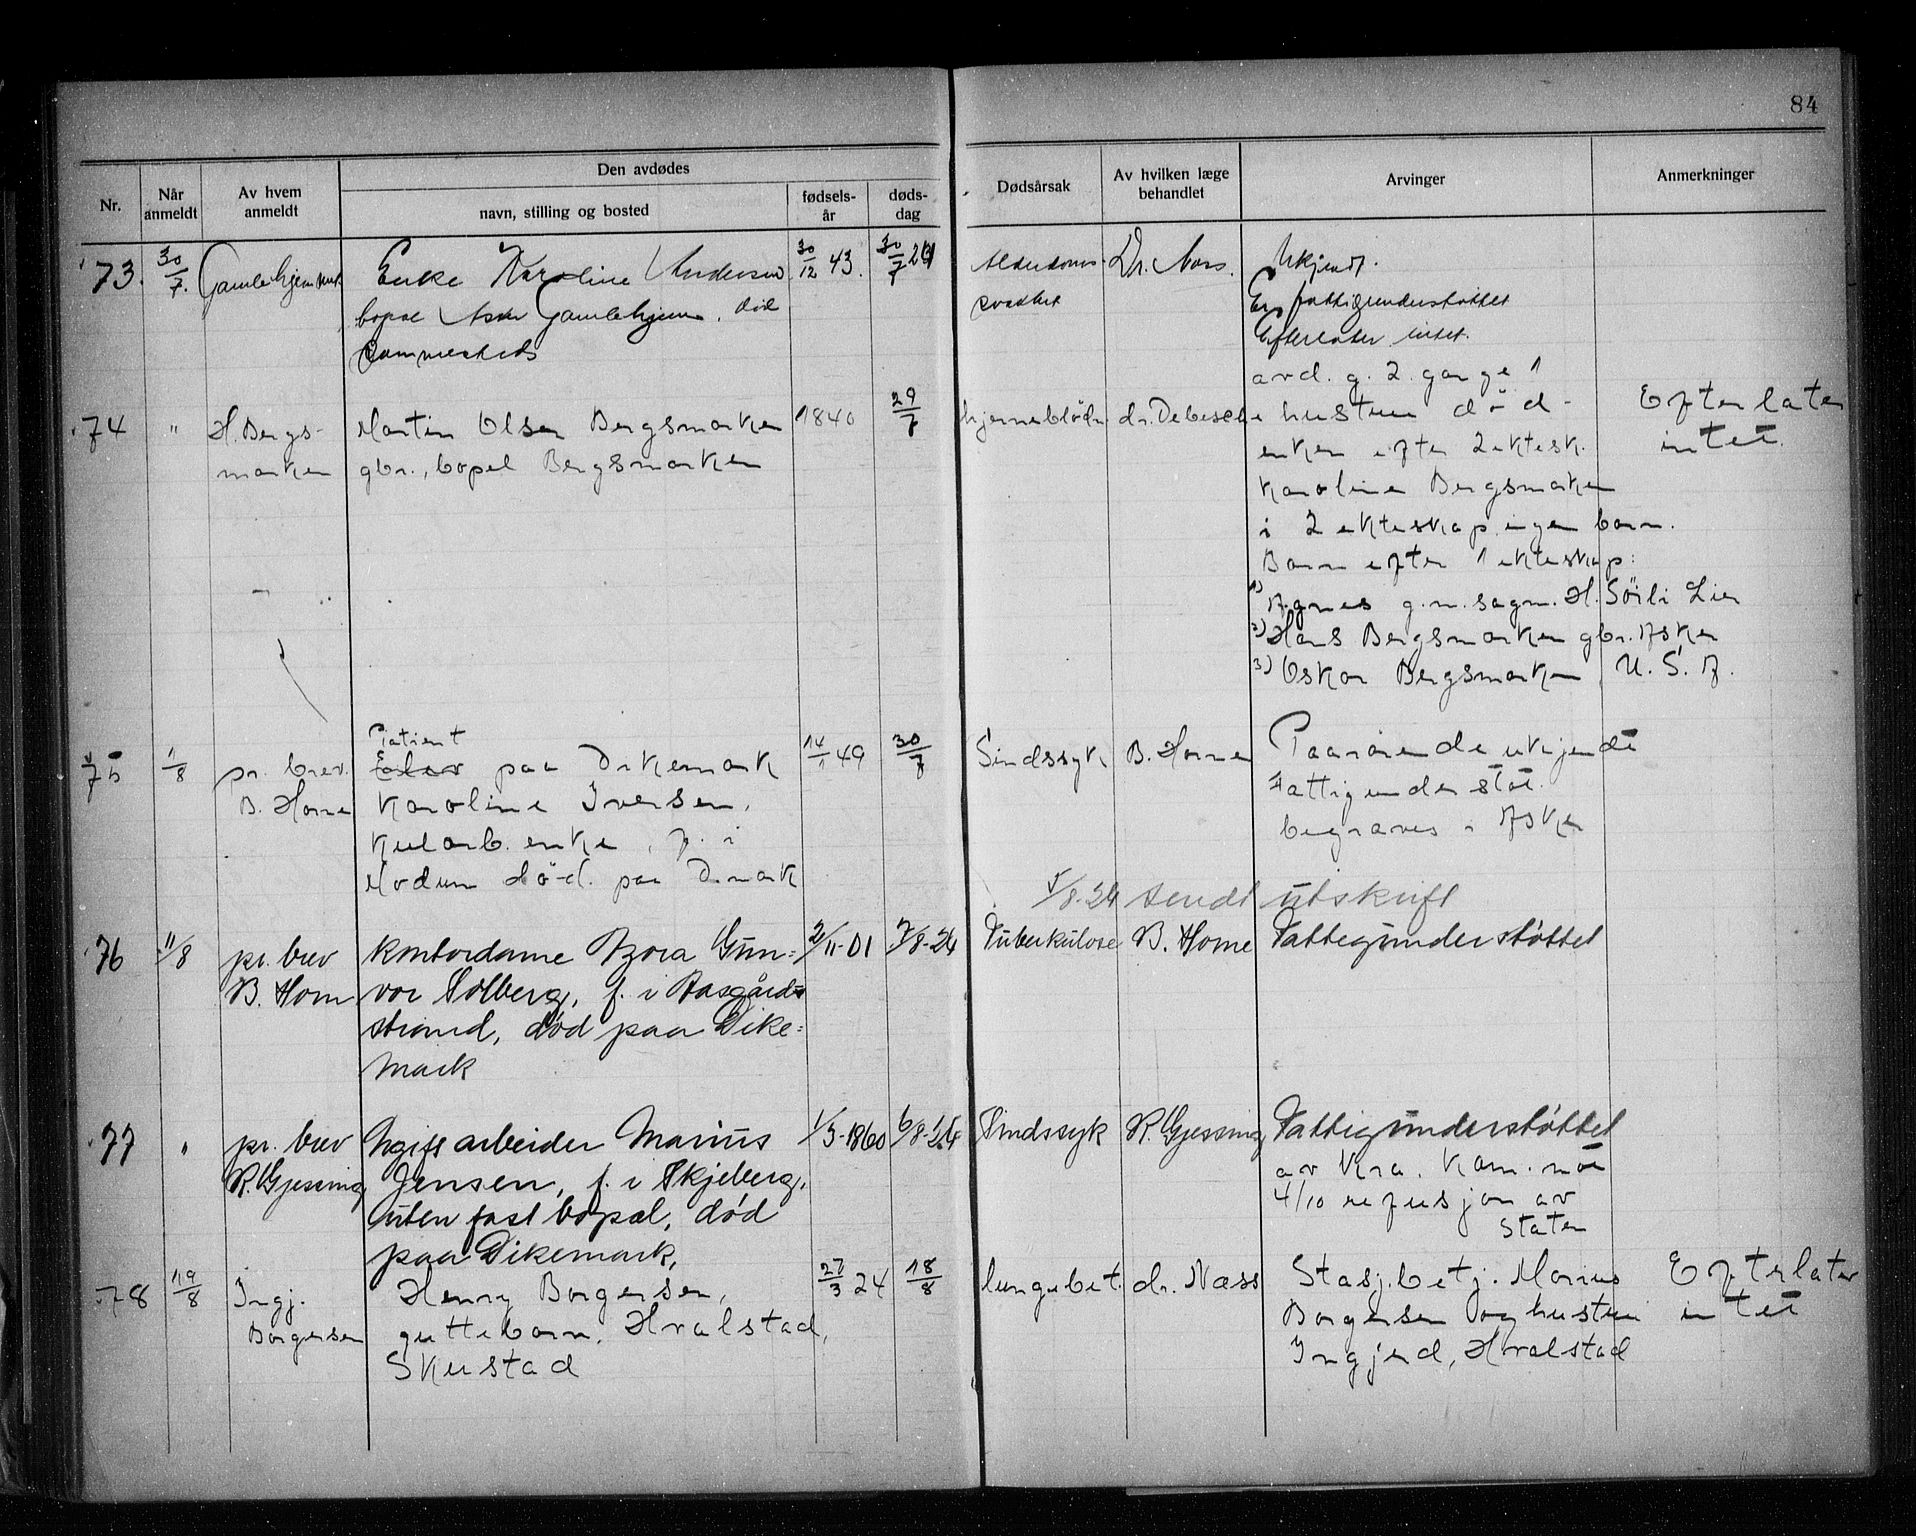 84
Nr.
Når anmeldt
Av hvem anmeldt
Den avdødes
navn, stilling og bosted
fødsels-år
døds-dag
Dødsårsak
Av hvilken læge behandlet
Arvinger
Anmerkninger
73. 30/7. Gamlehjemmet Enke Karoline Andersen 30/12 43. 30/7 24 Alderdoms- Dr. Næss. Ukjendt.
bopæl Asker Gamlehjem. död svakhet Er fattigunderstöttet
sammesteds Efterlater intet.
avd. g. 2 gange 1
74 " H. Bergs- Martin Olsen Bergsmarken 1840 29/7 hjerneblödn. dr. Debesche hustru död - Efterlater
marken gbr., bopel Bergsmarken enken efter 2 ektesk. intet.
Karoline Bergsmarken
i 2 ekteskap ingen barn.
Barn efter 1 ekteskap:
1) Agnes g.m. sagm. H. Sörli Lier
2) Hans Bergsmarken gbr. Asker
3) Oskar Bergsmarken U. S. A.
Patient
75 1/8 pr. brev. Elev paa Dikemark 14/1 49 30/7 Sindssyk B. Horne Paarörende ukjendt
B. Horne Karoline Iversen, Fattigunderstöt.
kularb. enke, f. i begraves i Asker
Modum död. paa D.mark
5/8-24 sendt utskrift
76 11/8 pr. brev kontordame Bzora Gun= 2/11-01 7/8-24 Tuberkulose B. Horne Fattigunderstöttet
B. Horn vor Solberg, f. i Aasgård=
strand, död paa Dike=
mark
77 " pr. brev Ugift arbeider Marius 1/5-1860 6/8-24 Sindssyk R. Gjessing Fattigunderstöttet
R. Gjessing Jensen, f. i Skjeberg, av Kra. kom. möt
uten fast bopæl, död 4/10 refusjon av
paa Dikemark, Staten
78 19/8 Ingj. Henry Borgersen, 27/3 24 18/8 lungebet. dr. Næss Stasj.betj. Marius Efterlater
Borgersen guttebarn, Hvalstad, Borgersen og hustru intet
Skustad Ingjerd, Hvalstad